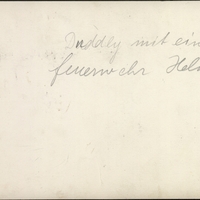 Daddly mit ein
feuerwehr Hel